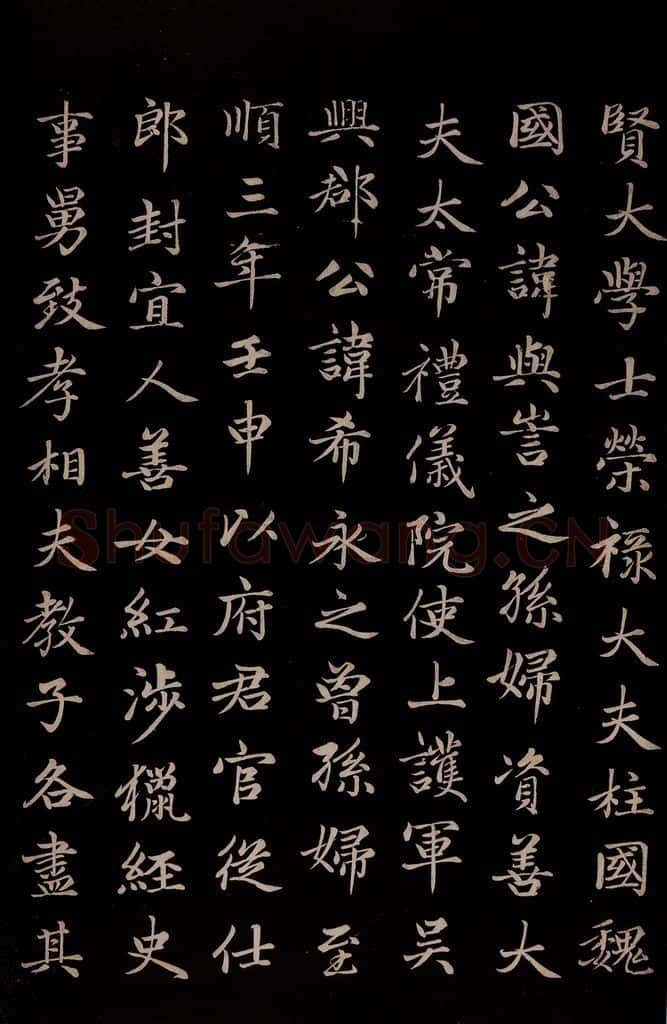 賢大學士榮祿大夫柱國魏
國公諱與訔之孫婦資善大
夫太常禮儀院使上護軍吴
興郡公諱希永之曾孫婦至
順三年壬申以府君官從仕
郎封宜人善女紅涉獵経史
事舅致孝相夫教子各盡其
Shufawang.CN